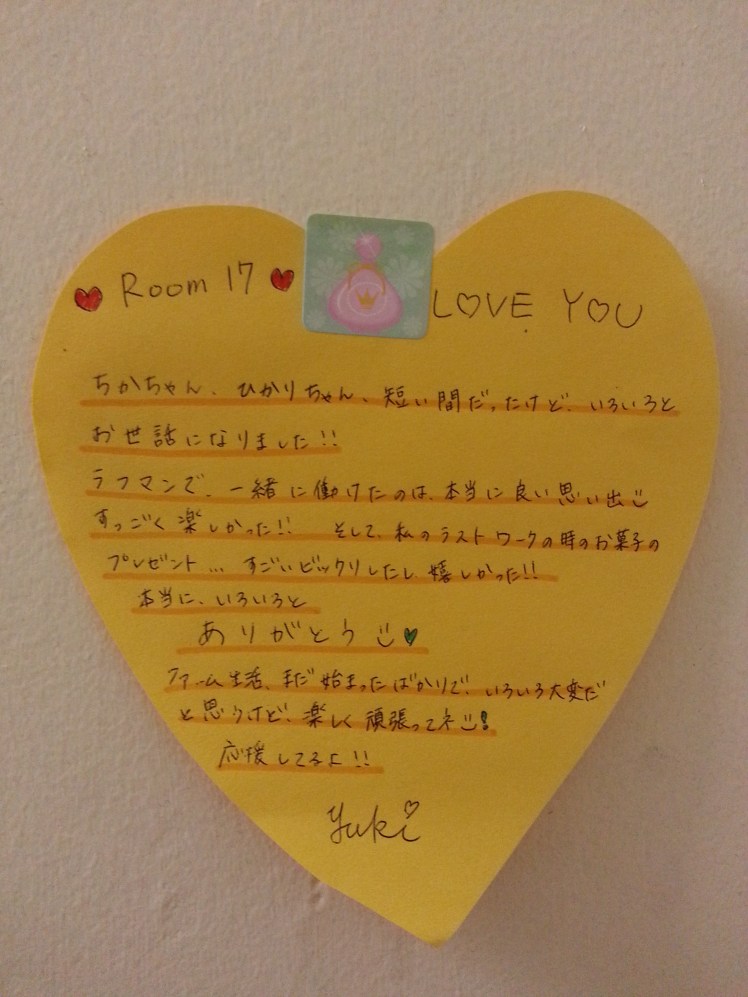 ♥ Room 17 ♥ L♡VE Y♡U
ちかちゃん、ひかりちゃん、短い間だったけど、いろいろと
お世話になりました!!
ラフマンで、一緒に働けたのは、本当に良い思い出☺
すっごく楽しかった!! そして、私のラストワークの時のお菓子の
プレゼント... すごいビックリしたし、嬉しかった!!
本当に、いろいろと
ありがとう☺♥
ファーム生活、まだ始まったばかりで、いろいろ大変だ
と思うけど、楽しく頑張ってネ☺!
応援してるよ!!
Yuki